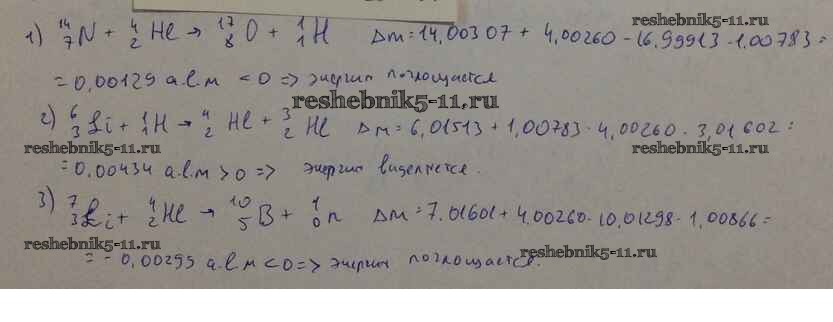 reshebnik5-11.ru
1) ¹⁴₇N + ⁴₂He → ¹⁷₈O + ¹₁H Δm = 14,00307 + 4,00260 - 16,99913 - 1,00783 =
= 0,00129 а.е.м < 0 => энергия поглощается
reshebnik5-11.ru
2) ⁶₃Li + ¹₁H → ⁴₂He + ³₂He Δm = 6,01513 + 1,00783 - 4,00260 - 3,01602 =
reshebnik5-11.ru reshebnik5-11.ru
= 0,00434 а.е.м > 0 => энергия выделяется.
3) ⁷₃Li + ⁴₂He → ¹⁰₅B + ¹₀n Δm = 7.01601 + 4,00260 - 10,01298 - 1,00866 =
reshebnik5-11.ru
= - 0,00299 а.е.м < 0 => энергия поглощается.
reshebnik5-11.ru